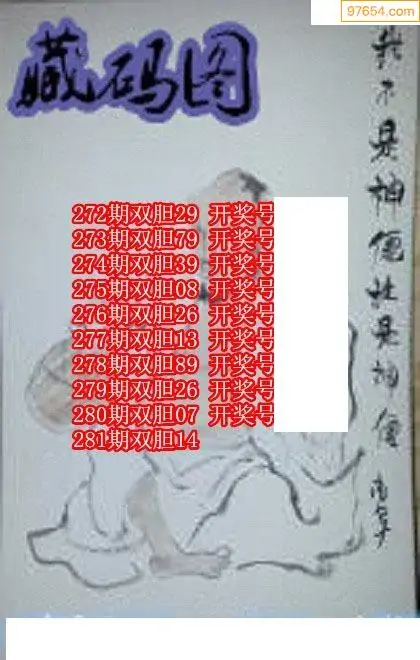 97654.com
藏码图
272期双胆29 开奖号
273期双胆79 开奖号
274期双胆39 开奖号
275期双胆08 开奖号
276期双胆26 开奖号
277期双胆13 开奖号
278期双胆89 开奖号
279期双胆26 开奖号
280期双胆07 开奖号
281期双胆14
我不是神僊谁是神僊